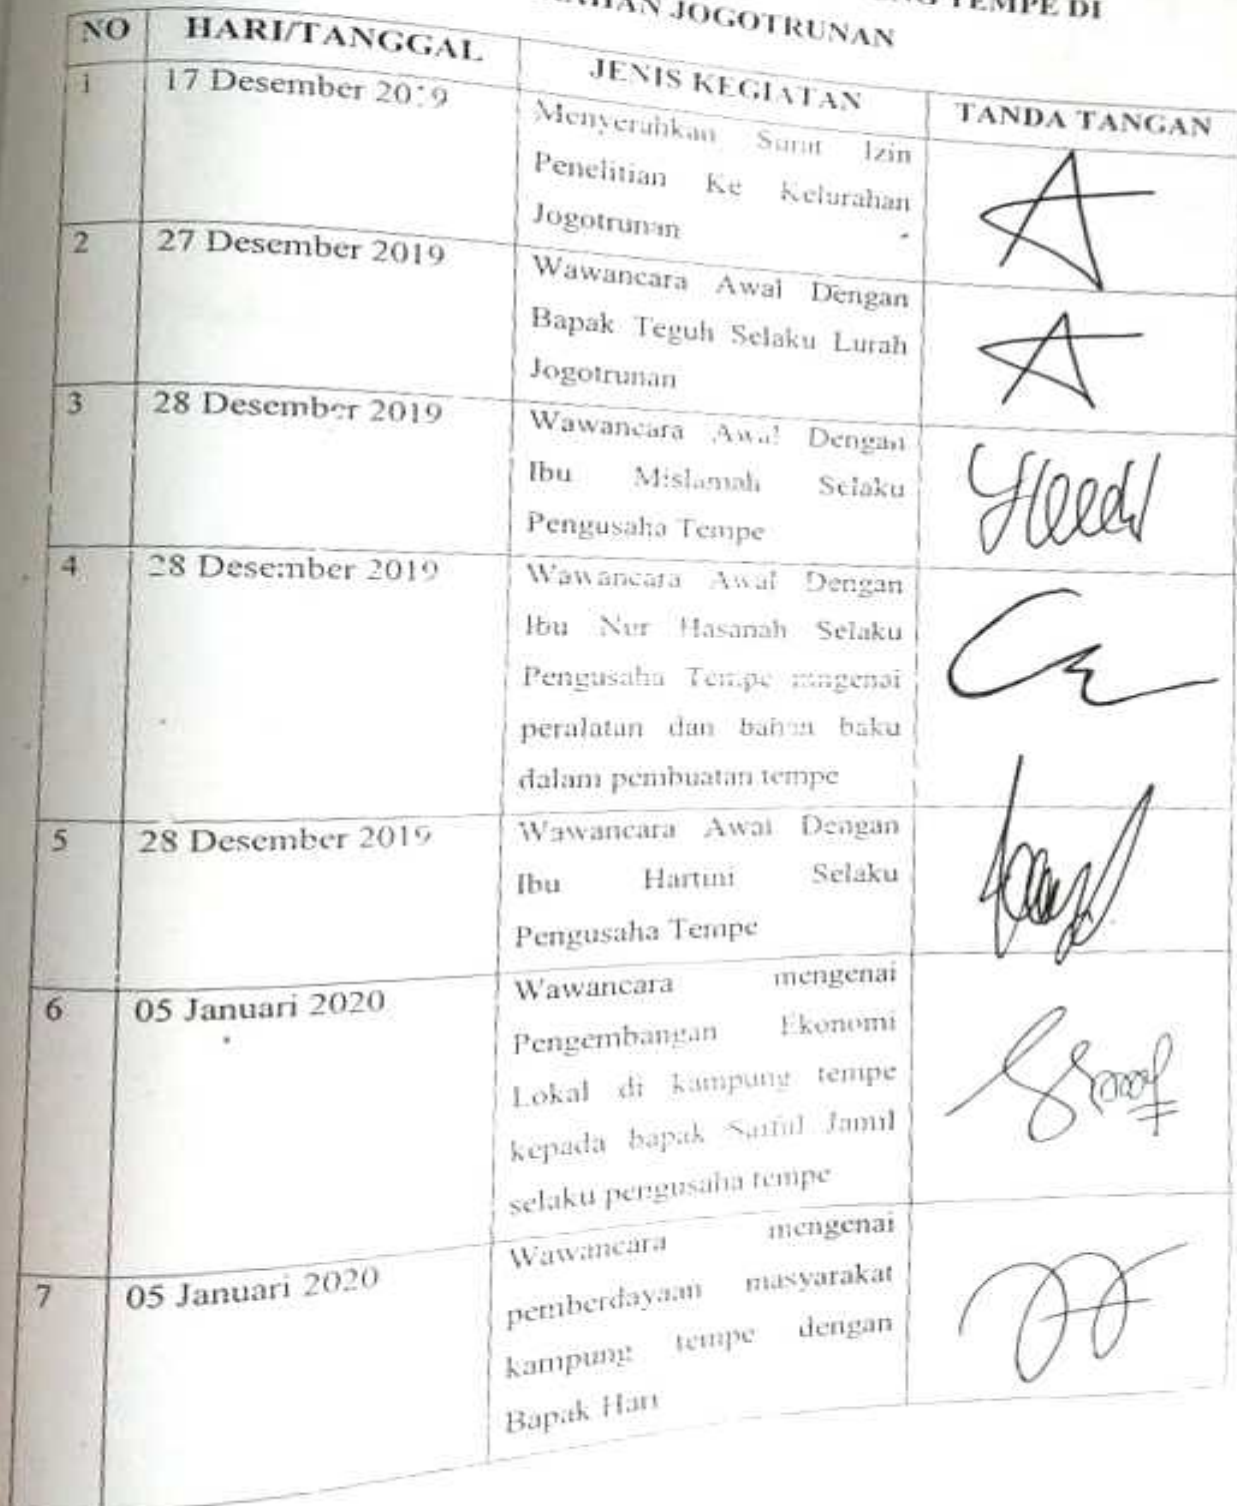 TEMPE DI
JOGOTRUNAN
NO HARI/TANGGAL JENIS KEGIATAN TANDA TANGAN
1 17 Desember 2019 Menyerahkan Surat Izin
Penelitian Ke Kelurahan
Jogotrunan
2 27 Desember 2019 Wawancara Awal Dengan
Bapak Teguh Selaku Lurah
Jogotrunan
3 28 Desember 2019 Wawancara Awal Dengan
Ibu Mislamah Selaku
Pengusaha Tempe
4 28 Desember 2019 Wawancara Awal Dengan
Ibu Nur Hasanah Selaku
Pengusaha Tempe mngenai
peralatan dan bahan baku
dalam pembuatan tempe
5 28 Desember 2019 Wawancara Awal Dengan
Ibu Hartini Selaku
Pengusaha Tempe
6 05 Januari 2020 Wawancara mengenai
Pengembangan Ekonomi
Lokal di kampung tempe
kepada bapak Saiful Jamil
selaku pengusaha tempe
7 05 Januari 2020 Wawancara mengenai
pemberdayaan masyarakat
kampung tempe dengan
Bapak Hari